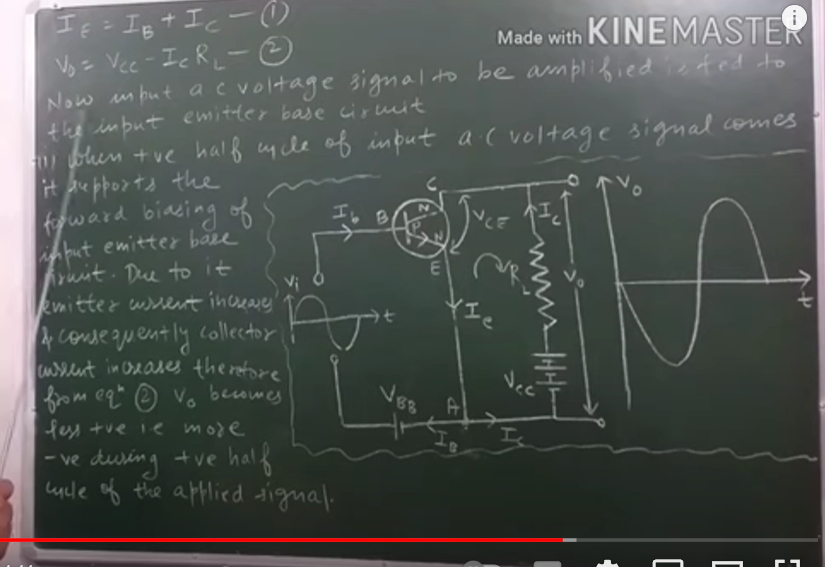 I_E = I_B + I_C — ①
V_o = V_CC - I_C R_L — ②
Made with KINEMASTER
Now input a c voltage signal to be amplified is fed to
the input emitter base circuit
(i) When +ve half cycle of input a.c voltage signal comes
it supports the
forward biasing of
input emitter base
circuit. Due to it
emitter current increases
& consequently collector
current increases therefore
from eqn ② V_o becomes
less +ve i.e more
-ve during +ve half
cycle of the applied signal.
C
V_o
I_b
B
N
P
N
V_CE
I_C
E
V_i
R_L
V_o
t
t
I_e
V_CC
V_BB
A
I_B
I_c